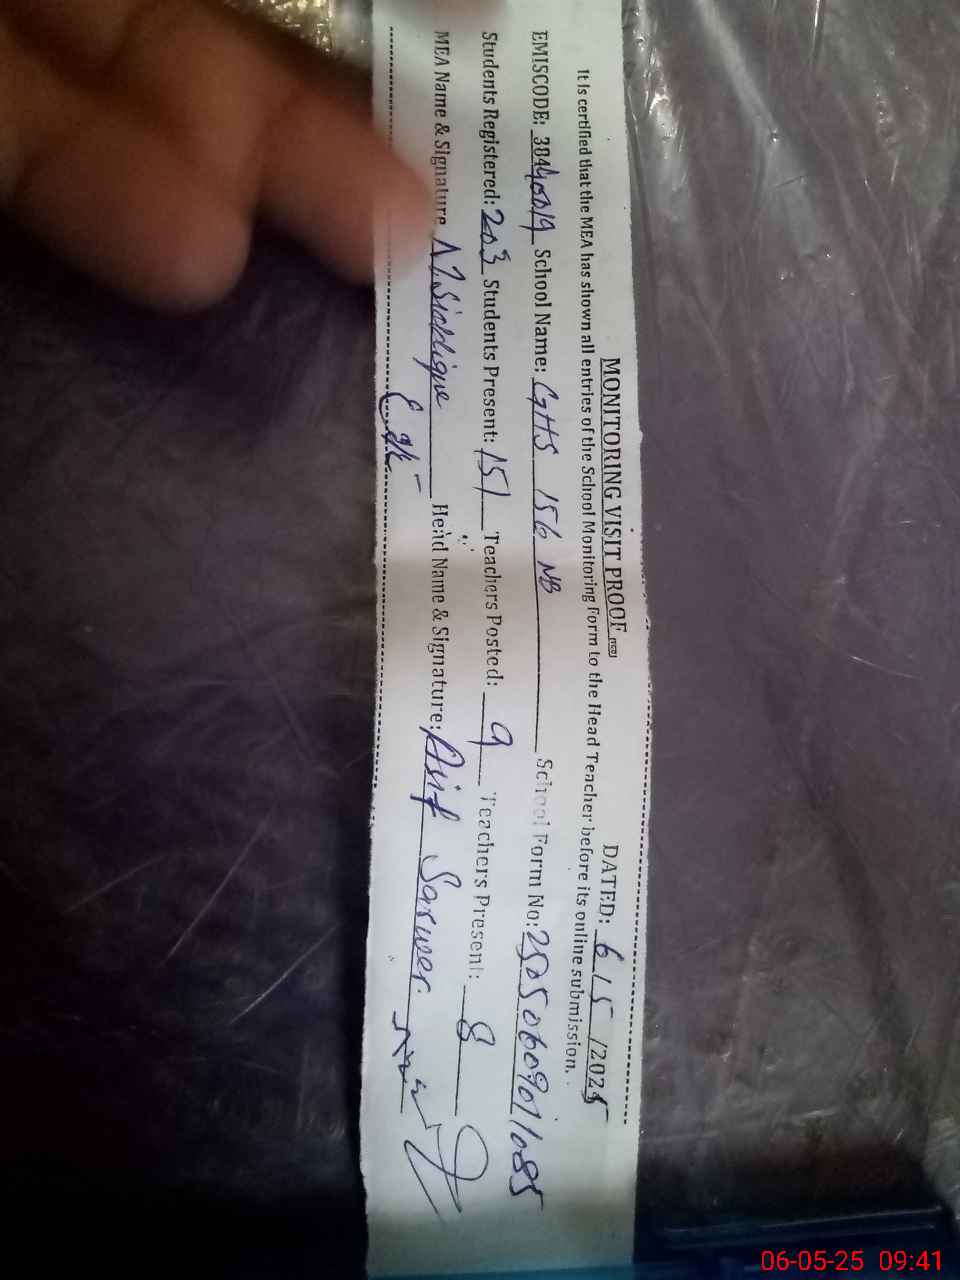 MONITORING VISIT PROOF DATED: 6/5/2025
It Is certified that the MEA has shown all entries of the School Monitoring Form to the Head Teacher before its online submission.
EMISCODE: 38440019 School Name: GHS 156 NB School Form No: 25050609011085
Students Registered: 203 Students Present: 151 Teachers Posted: 9 Teachers Present: 8
MEA Name & Signature M.Siddique Head Name & Signature: Asif Sarwer
06-05-25 09:41